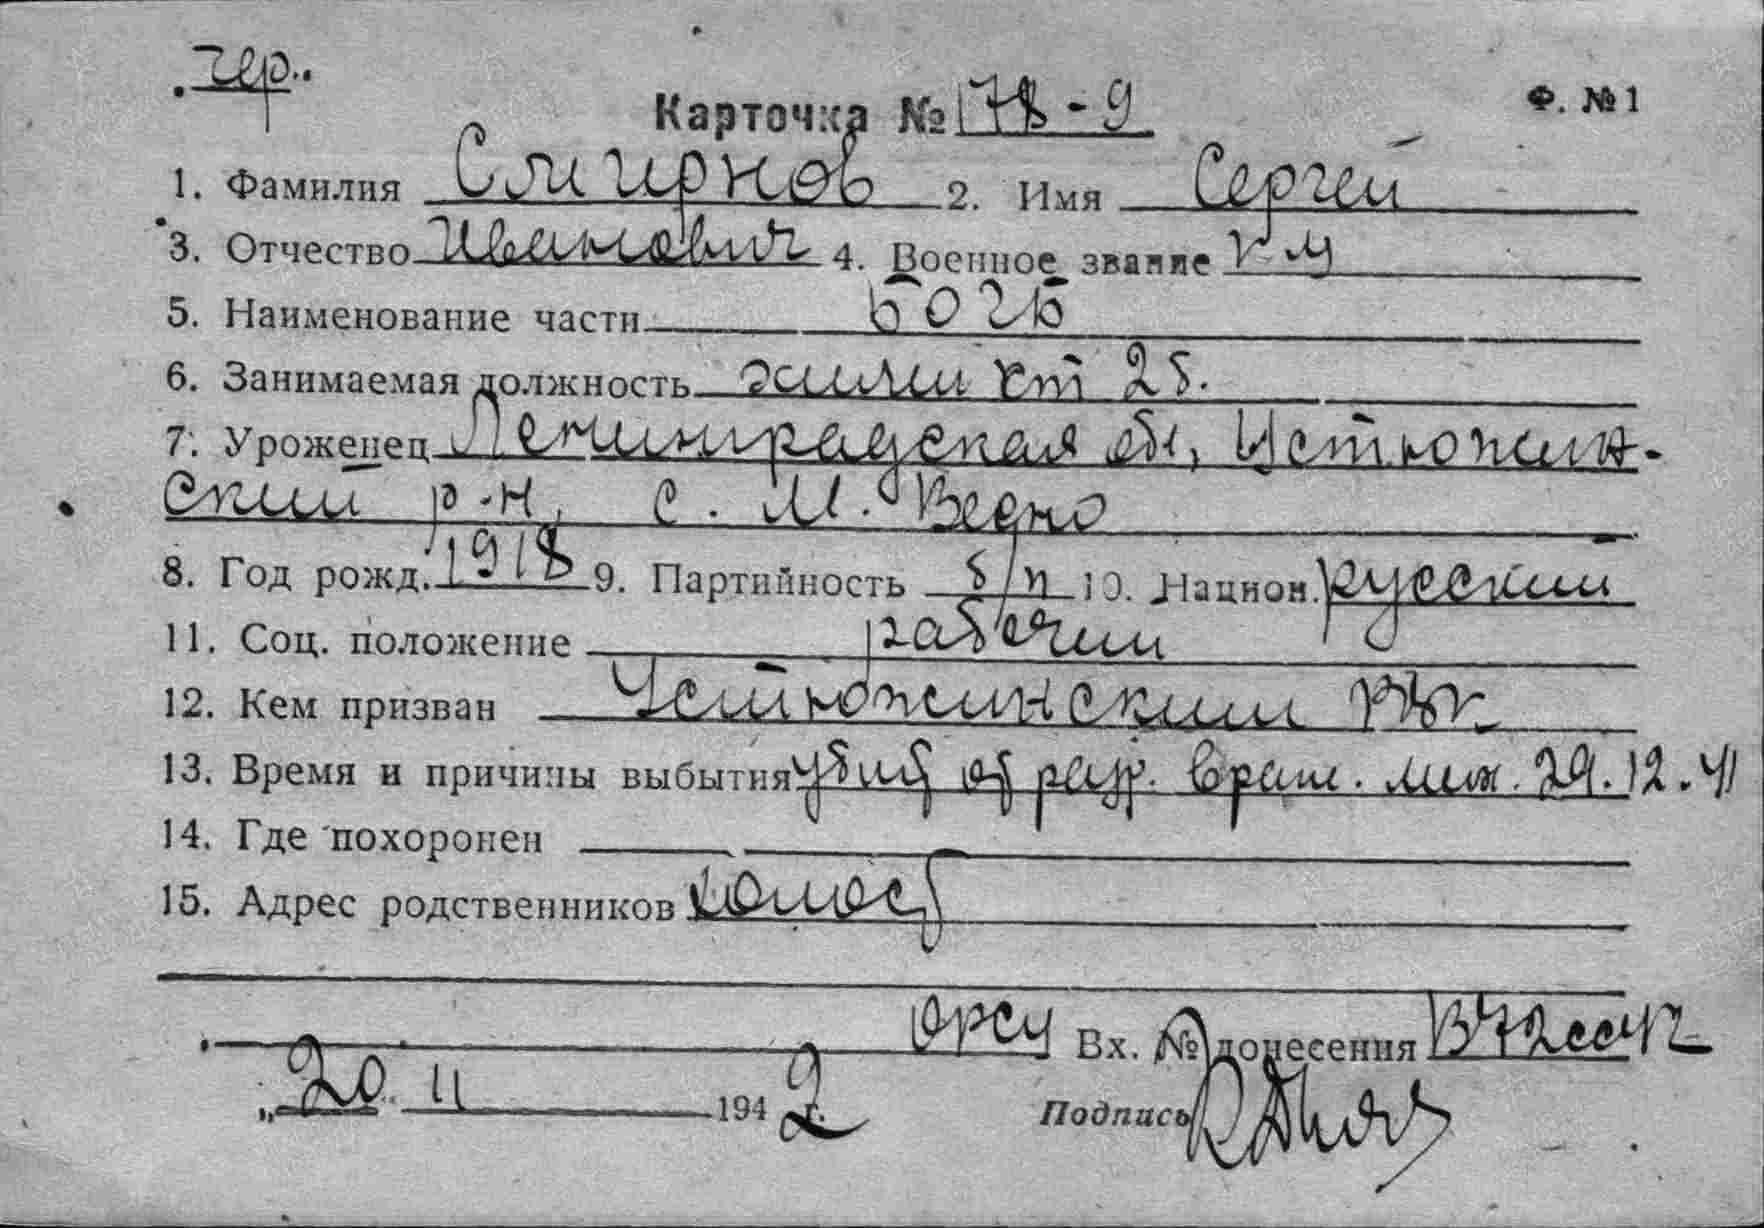 чер.
Карточка № 178-9 Ф. №1
1. Фамилия Смирнов 2. Имя Сергей
3. Отчество Иванович 4. Военное звание к-ц
5. Наименование части
6. Занимаемая должность 2 б.
7. Уроженец Ленинградская обл, Устюжин-
ский р-н, с. М. Ведно
8. Год рожд. 1918 9. Партийность б/п 10. Национ. русский
11. Соц. положение рабочий
12. Кем призван Устюжинским РВК
13. Время и причины выбытия убит от разр. враж. мин. 29.12.41
14. Где похоронен
15. Адрес родственников холост
Вх. № донесения
„20" 11 1942 г. Подпись